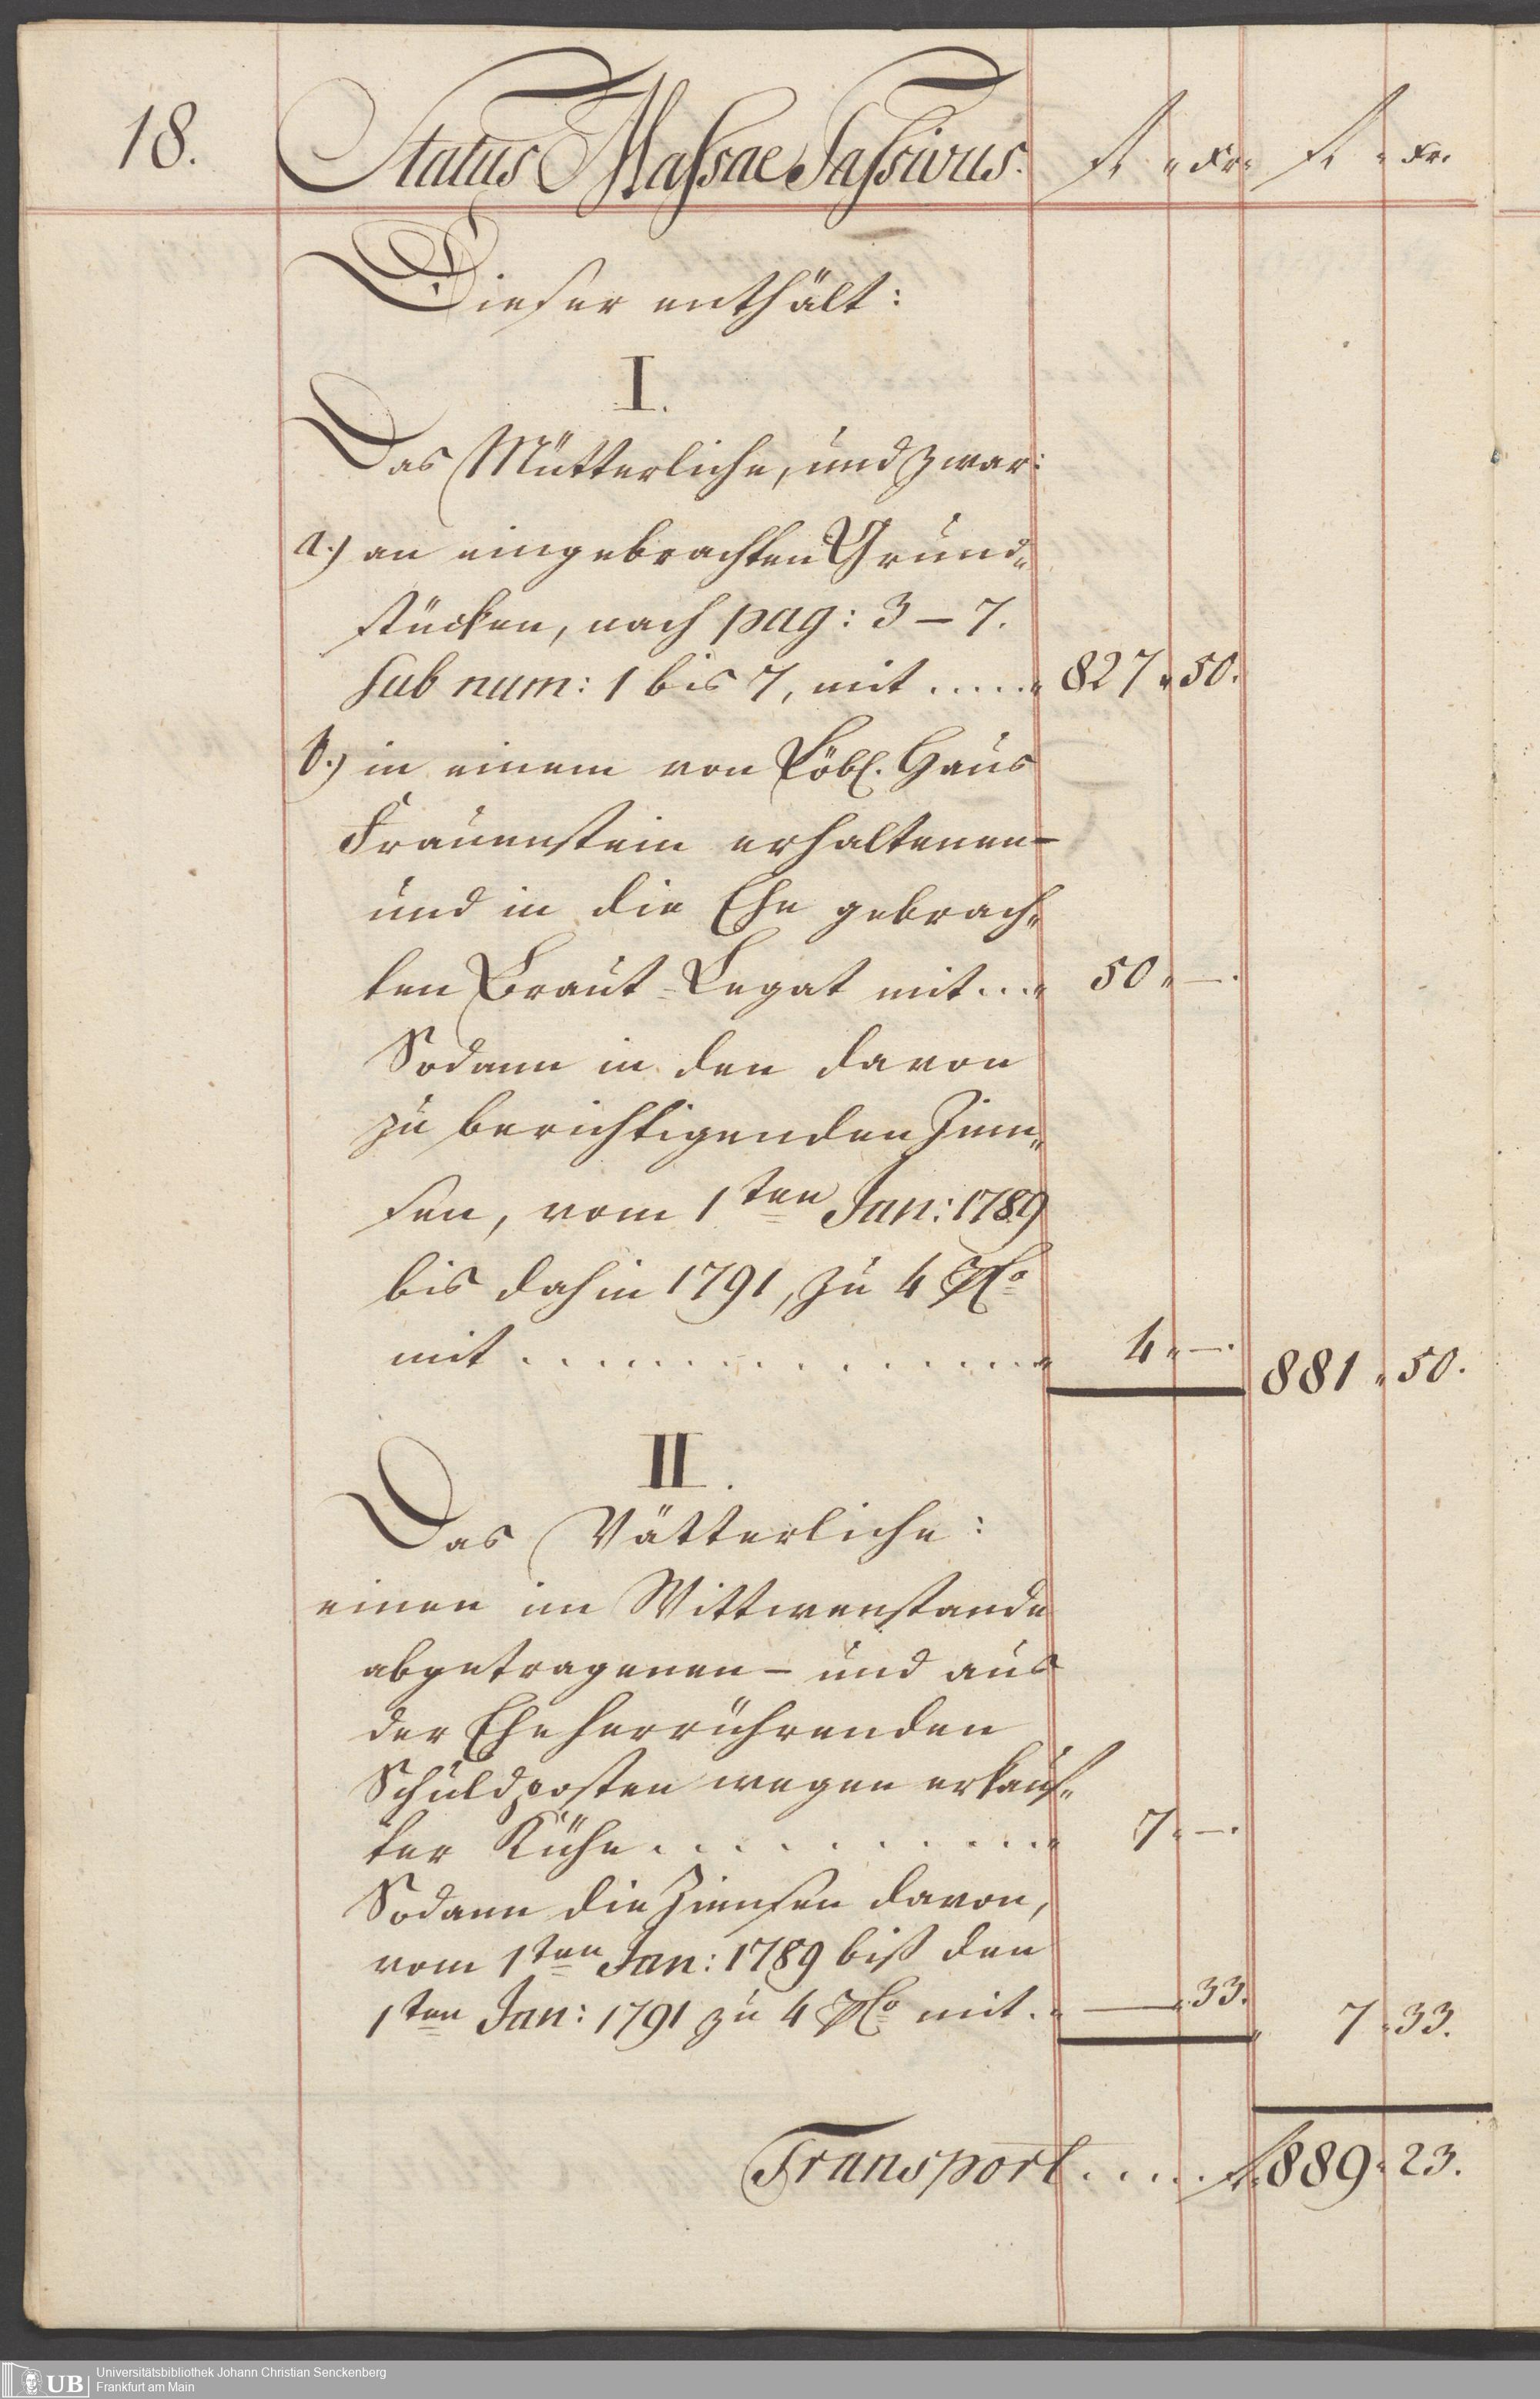 18. Status Massae Passivus. fl. " Xr. fl. " Xr.
Dieser enthält:
I.
Das Mütterliche, und zwar:
a.) an eingebrachten Grund„
stücken, nach pag: 3 – 7.
sub num: 1 bis 7, mit ..... " 827 " 50.
b.) in einem von Löbl. Haus
Frauenstein erhaltenen–
und in die Ehe gebrach„
ten Braut-Legat mit ... " 50 " —.
Sodann in den davon
zu berichtigenden Zinn„
sen, vom 1ten Jan: 1789
bis dahin 1791, zu 4 PCo
mit ................ " 4 " —. 881 " 50.
II.
Das Vätterliche:
einen im Wittwenstande
abgetragenen – und aus
der Ehe herrührenden
Schuldposten wegen erkauf„
ter Kühe ............ " 7 " —.
Sodann die Zinnsen davon,
vom 1ten Jan: 1789 biß den
1ten Jan: 1791 zu 4 PCo mit. " — " 33. 7 " 33.
Transport ..... fl. 889 " 23.
UB Universitätsbibliothek Johann Christian Senckenberg
Frankfurt am Main